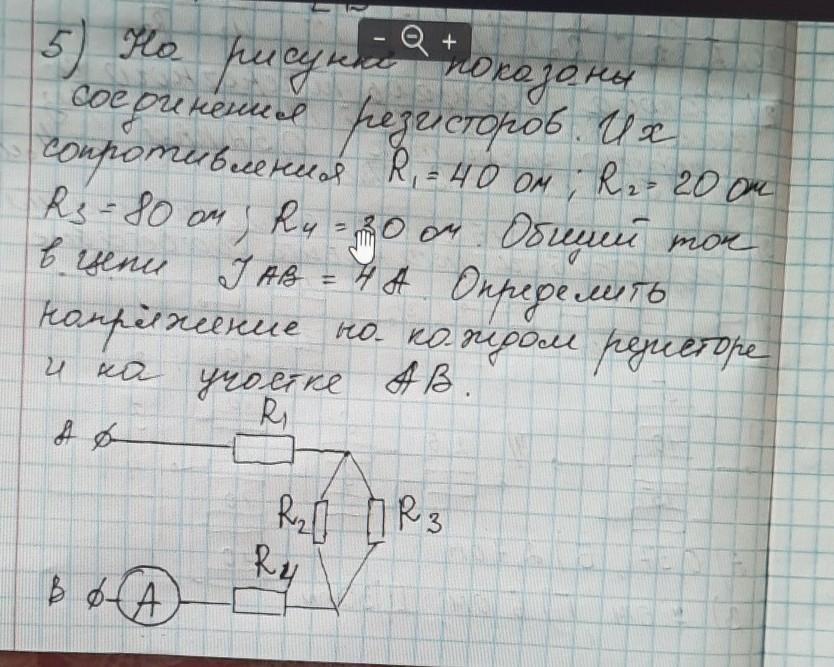 5) На рисунке показаны
соединения резисторов. Их
сопротивления R₁=40 ом; R₂=20 ом
R₃=80 ом; R₄=30 ом. Общий ток
в цепи J AB = 4 А. Определить
напряжение на каждом резисторе
и на участке АВ.
R₁
А
R₂ R₃
R₄
В А